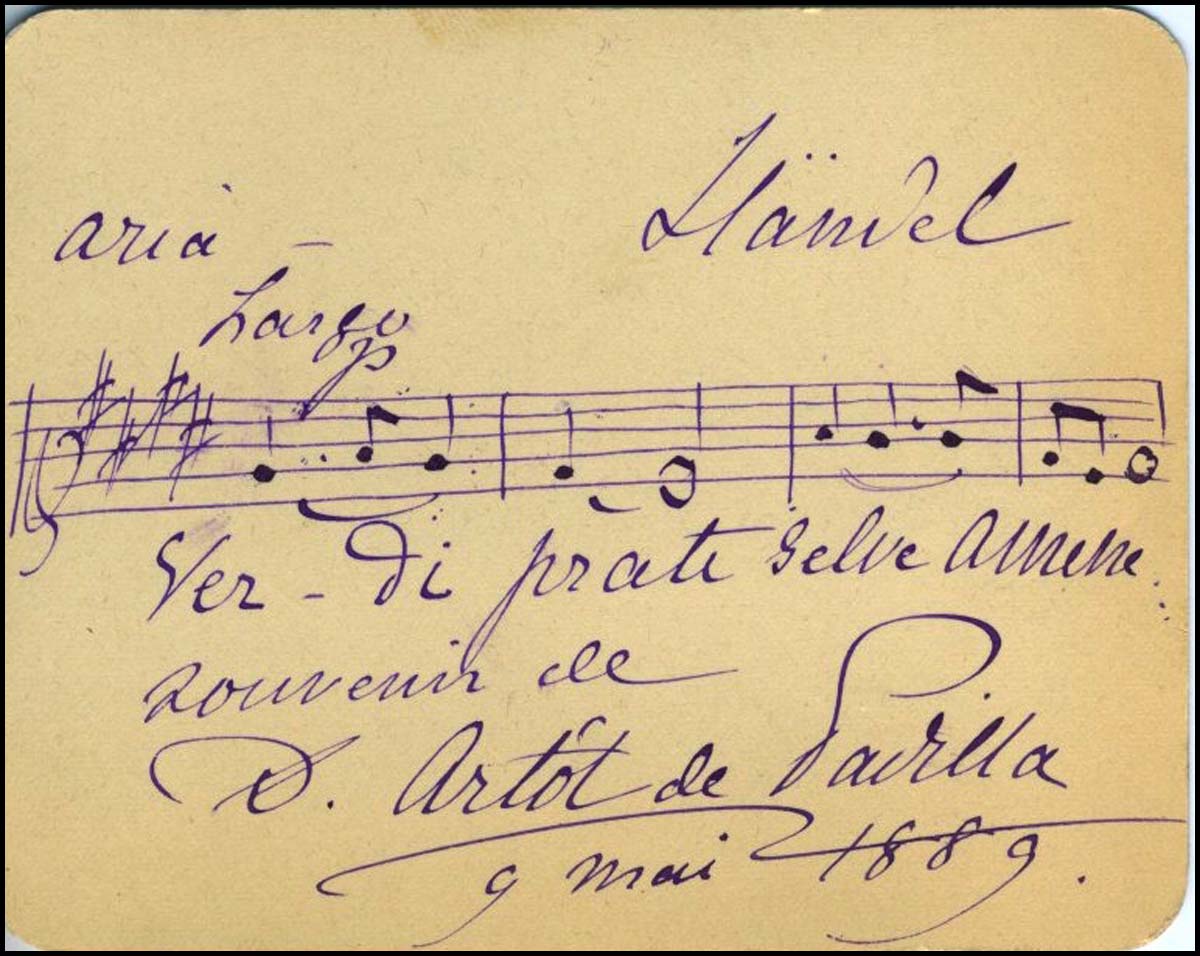 aria – Händel
Largo
p
Ver - di prati selve amene.
souvenir de
D. Artôt de Padilla
9 mai 1889.